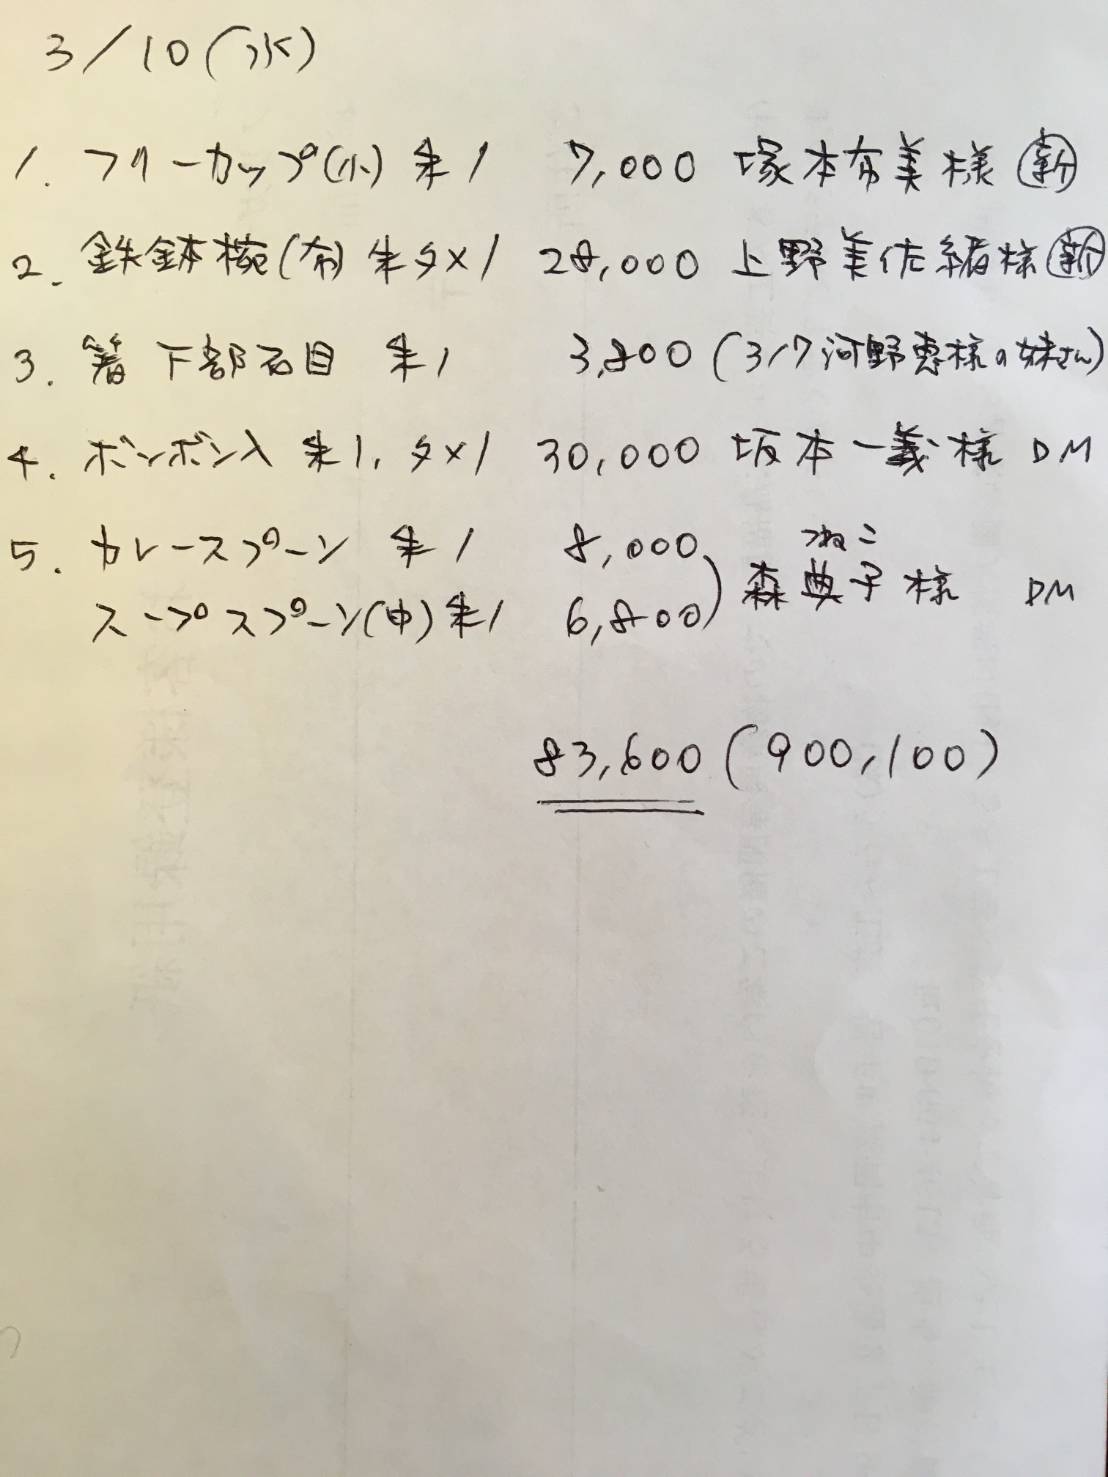 3/10(水)
1. フリーカップ(小) 朱1 7,000 塚本布美様 新
2. 鉄鉢椀(布) 朱タメ1 28,000 上野美佐緒様 新
3. 箸 下部石目 朱1 3,800 (3/7河野恵様の妹さん)
4. ボンボン入 朱1, タメ1 30,000 坂本一義様 DM
5. カレースプーン 朱1 8,000
スープスプーン(中) 朱1 6,800
つねこ
森典子様 DM
83,600 (900,100)